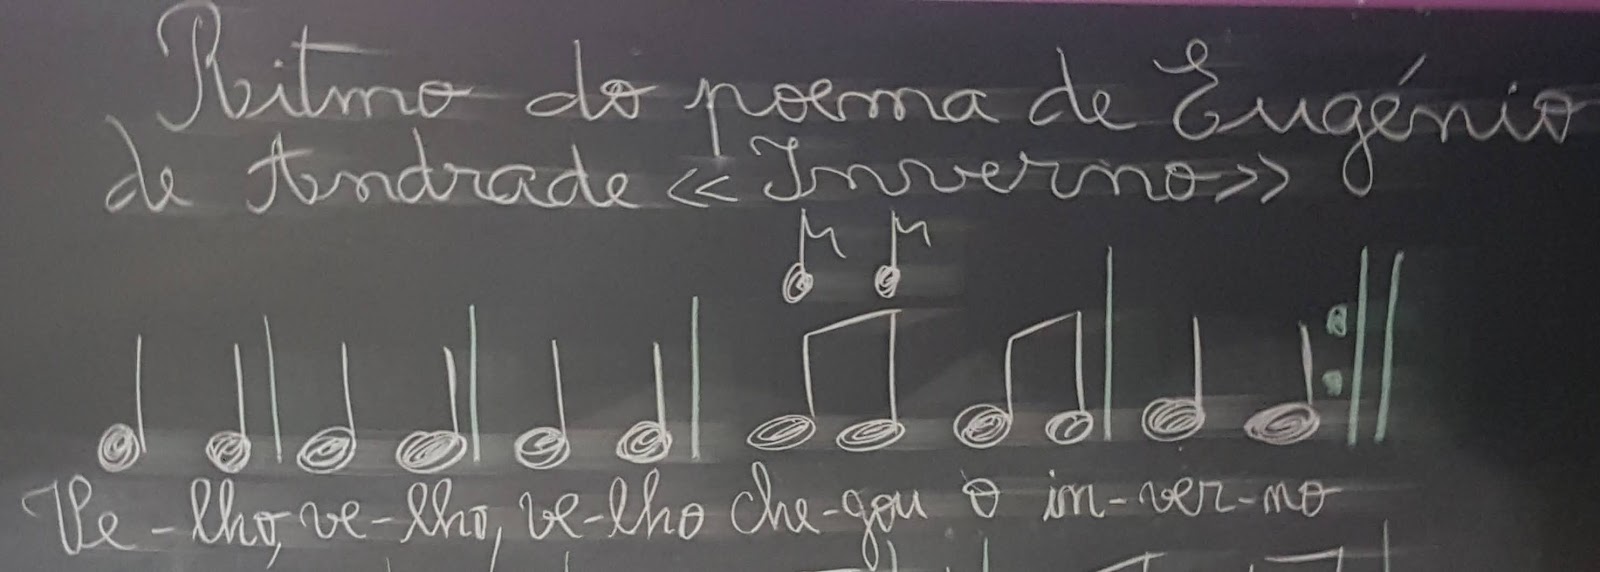 Ritmo do poema de Eugénio
de Andrade << Inverno>>
Ve-lho, ve-lho, ve-lho che-gou o in-ver-no